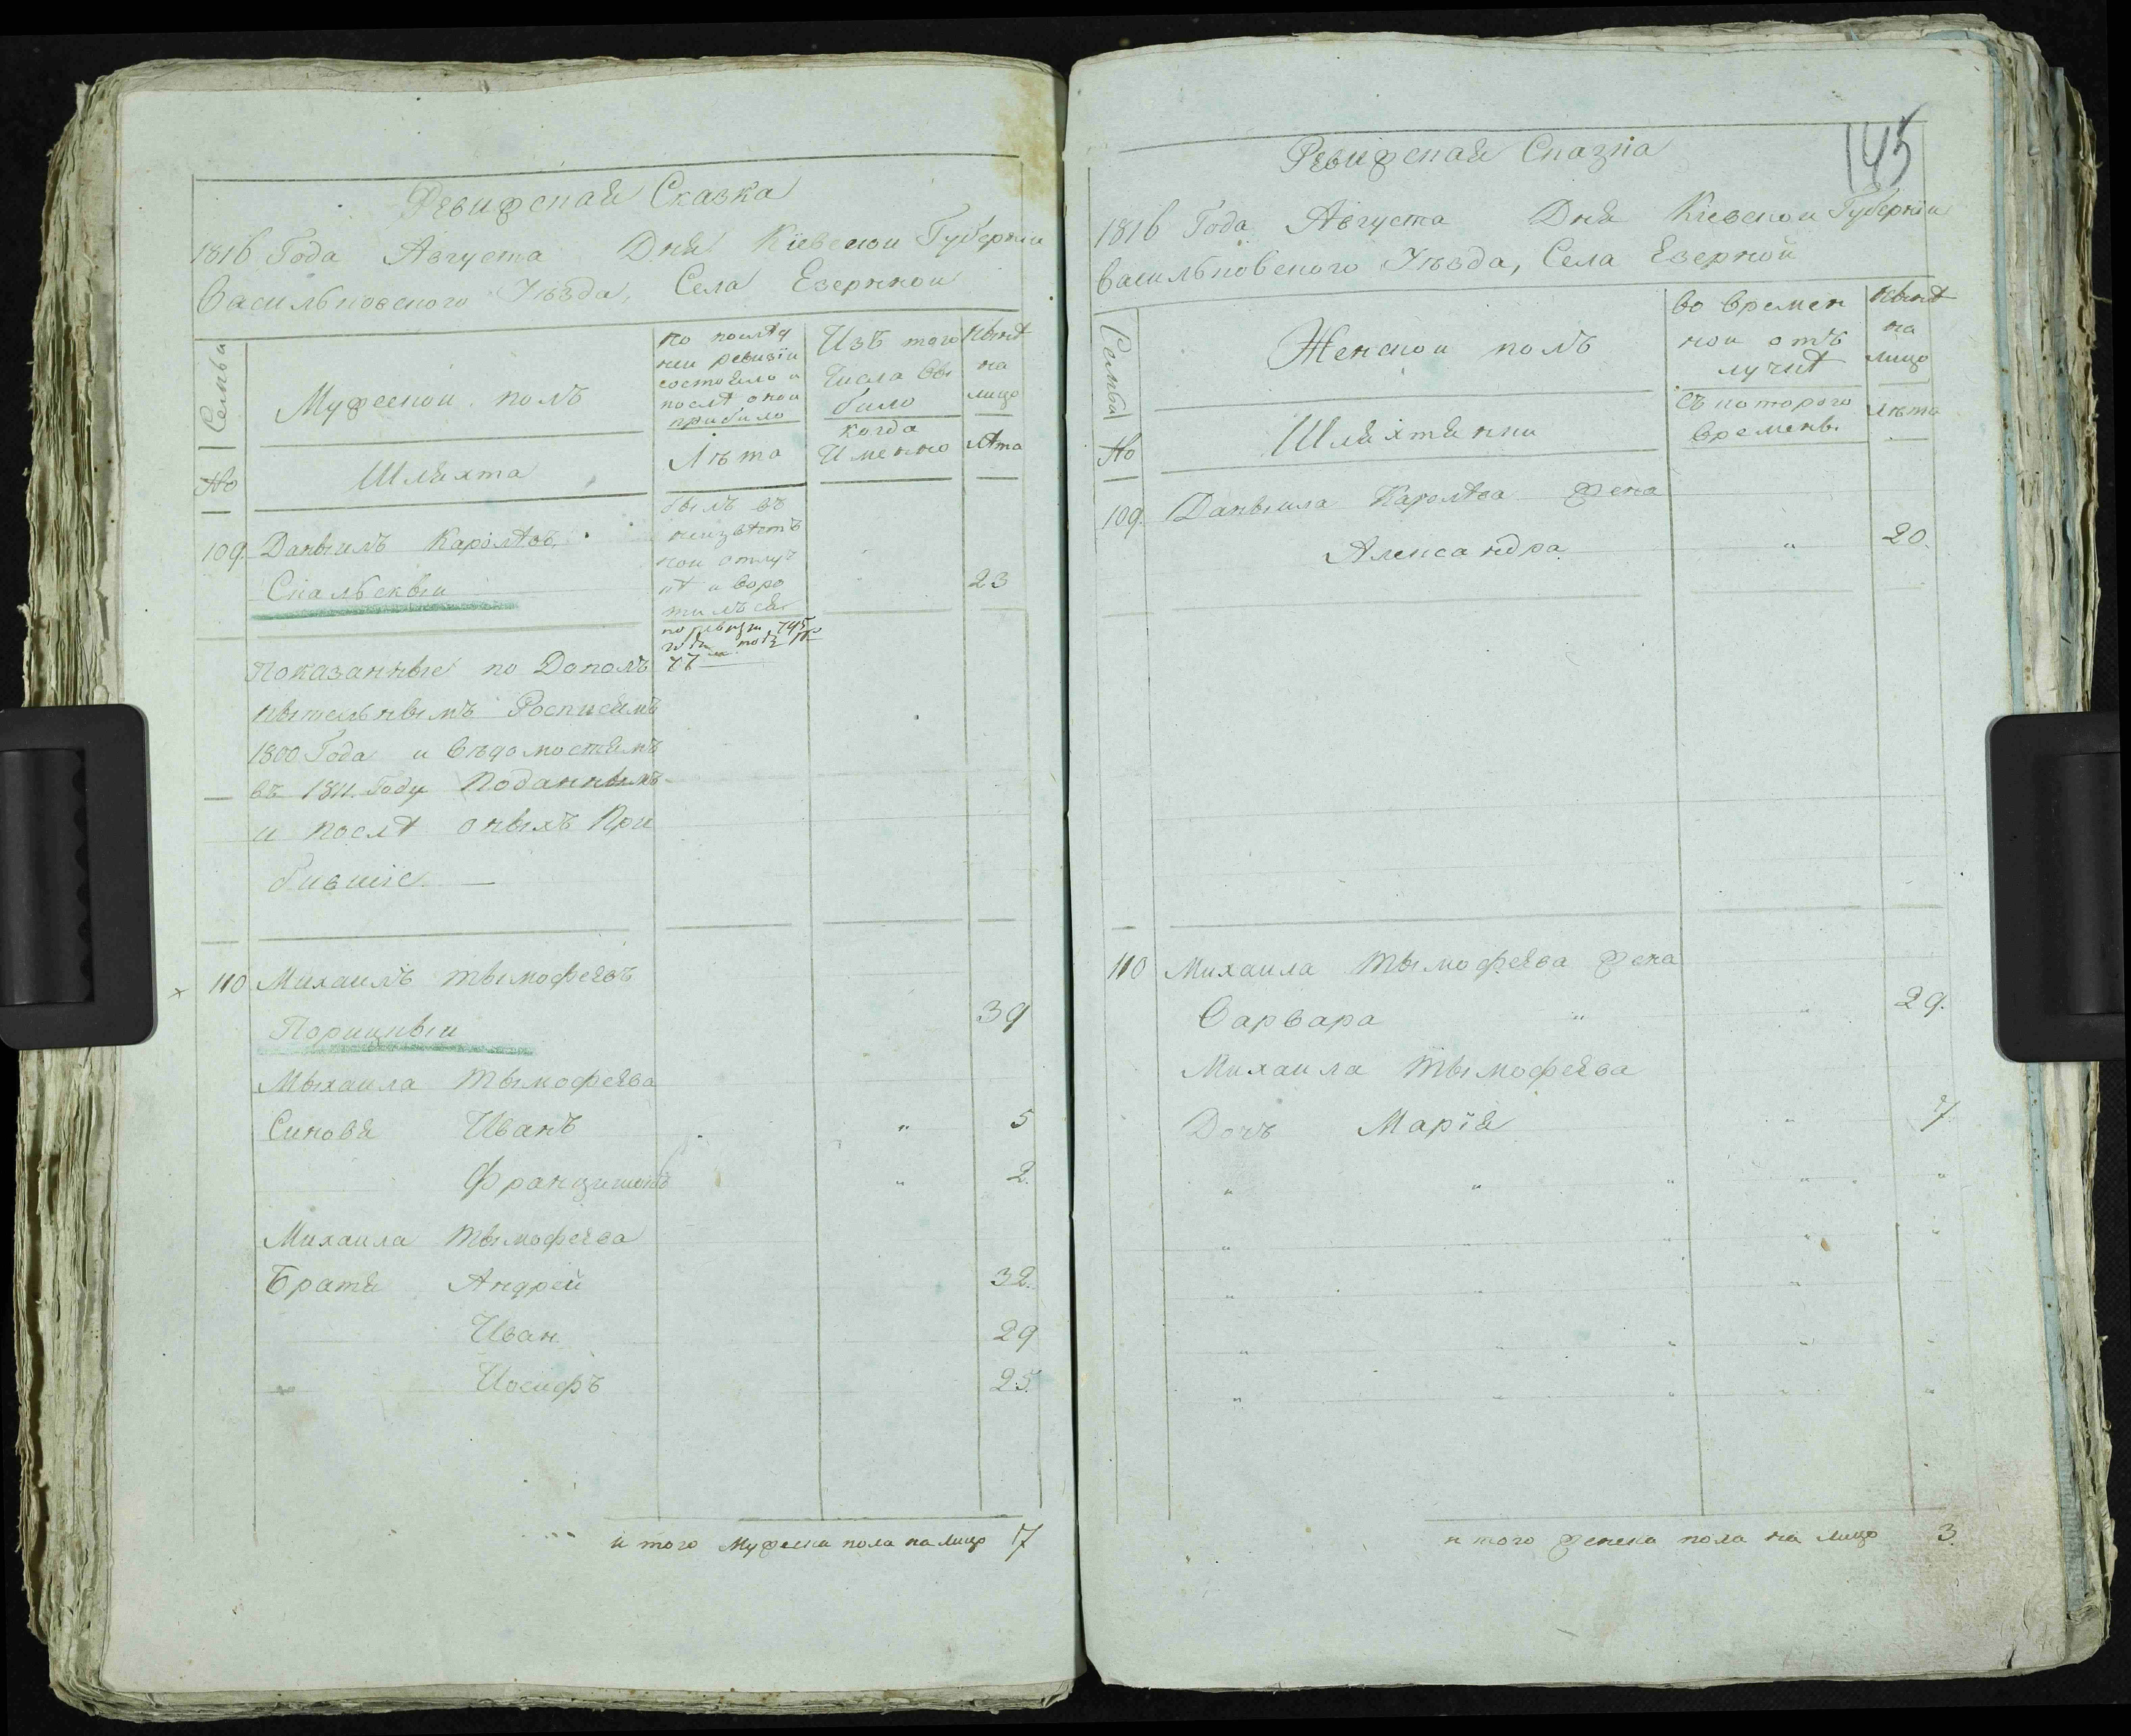 Ревизская Сказка
1816 Года Августа Дня Кіевской Губерніи
Васильковского Уѣзда, Села Езерной
Семья
№
Мужеской полъ
Шляхта
по послѣд
ней ревизіи
состояло и
послѣ оной
прибило
Лѣта
Изъ того
Числа вы
било
когда
Именно
Нынѣ
на
лицо
лѣта
109. Даныилъ Каролѣвъ
Скальскый
былъ въ
неизвѣстъ
ной отлуч
кѣ и воро
тилъся
23
по ревизіи 795
Показанные по Дополъ
нытельнымъ Росписямъ
1800 Года и вѣдомостямъ
въ 1811. Году Поданнымъ
и послѣ оныхъ При
бившіе
110 Михаилъ Тымофеявъ
39
Порицкый
Мыхаила Тымофеява
Синовя Иванъ " 5
Францишокъ " 2.
Михаила Тымофеява
Братя Андрей 32.
Иван 29
Иосифъ 25.
и того Мужеска пола на лицо 7
145
Ревизская Сказка
1816 Года Августа Дня Кіевской Губерніи
Васильковского Уѣзда, Села Езерной
Семья
№
Женской полъ
Шляхтянки
во времен
ной отъ
лучкѣ
съ которого
времены.
Нынѣ
на
лицо
Лѣта
109. Даныила Каролѣва жена
Александра " 20.
110 Михаила Тымофеява жена
Варвара " " 29.
Михаила Тымофеява
Дочъ Марія " 7
и того женска пола на лицо 3.